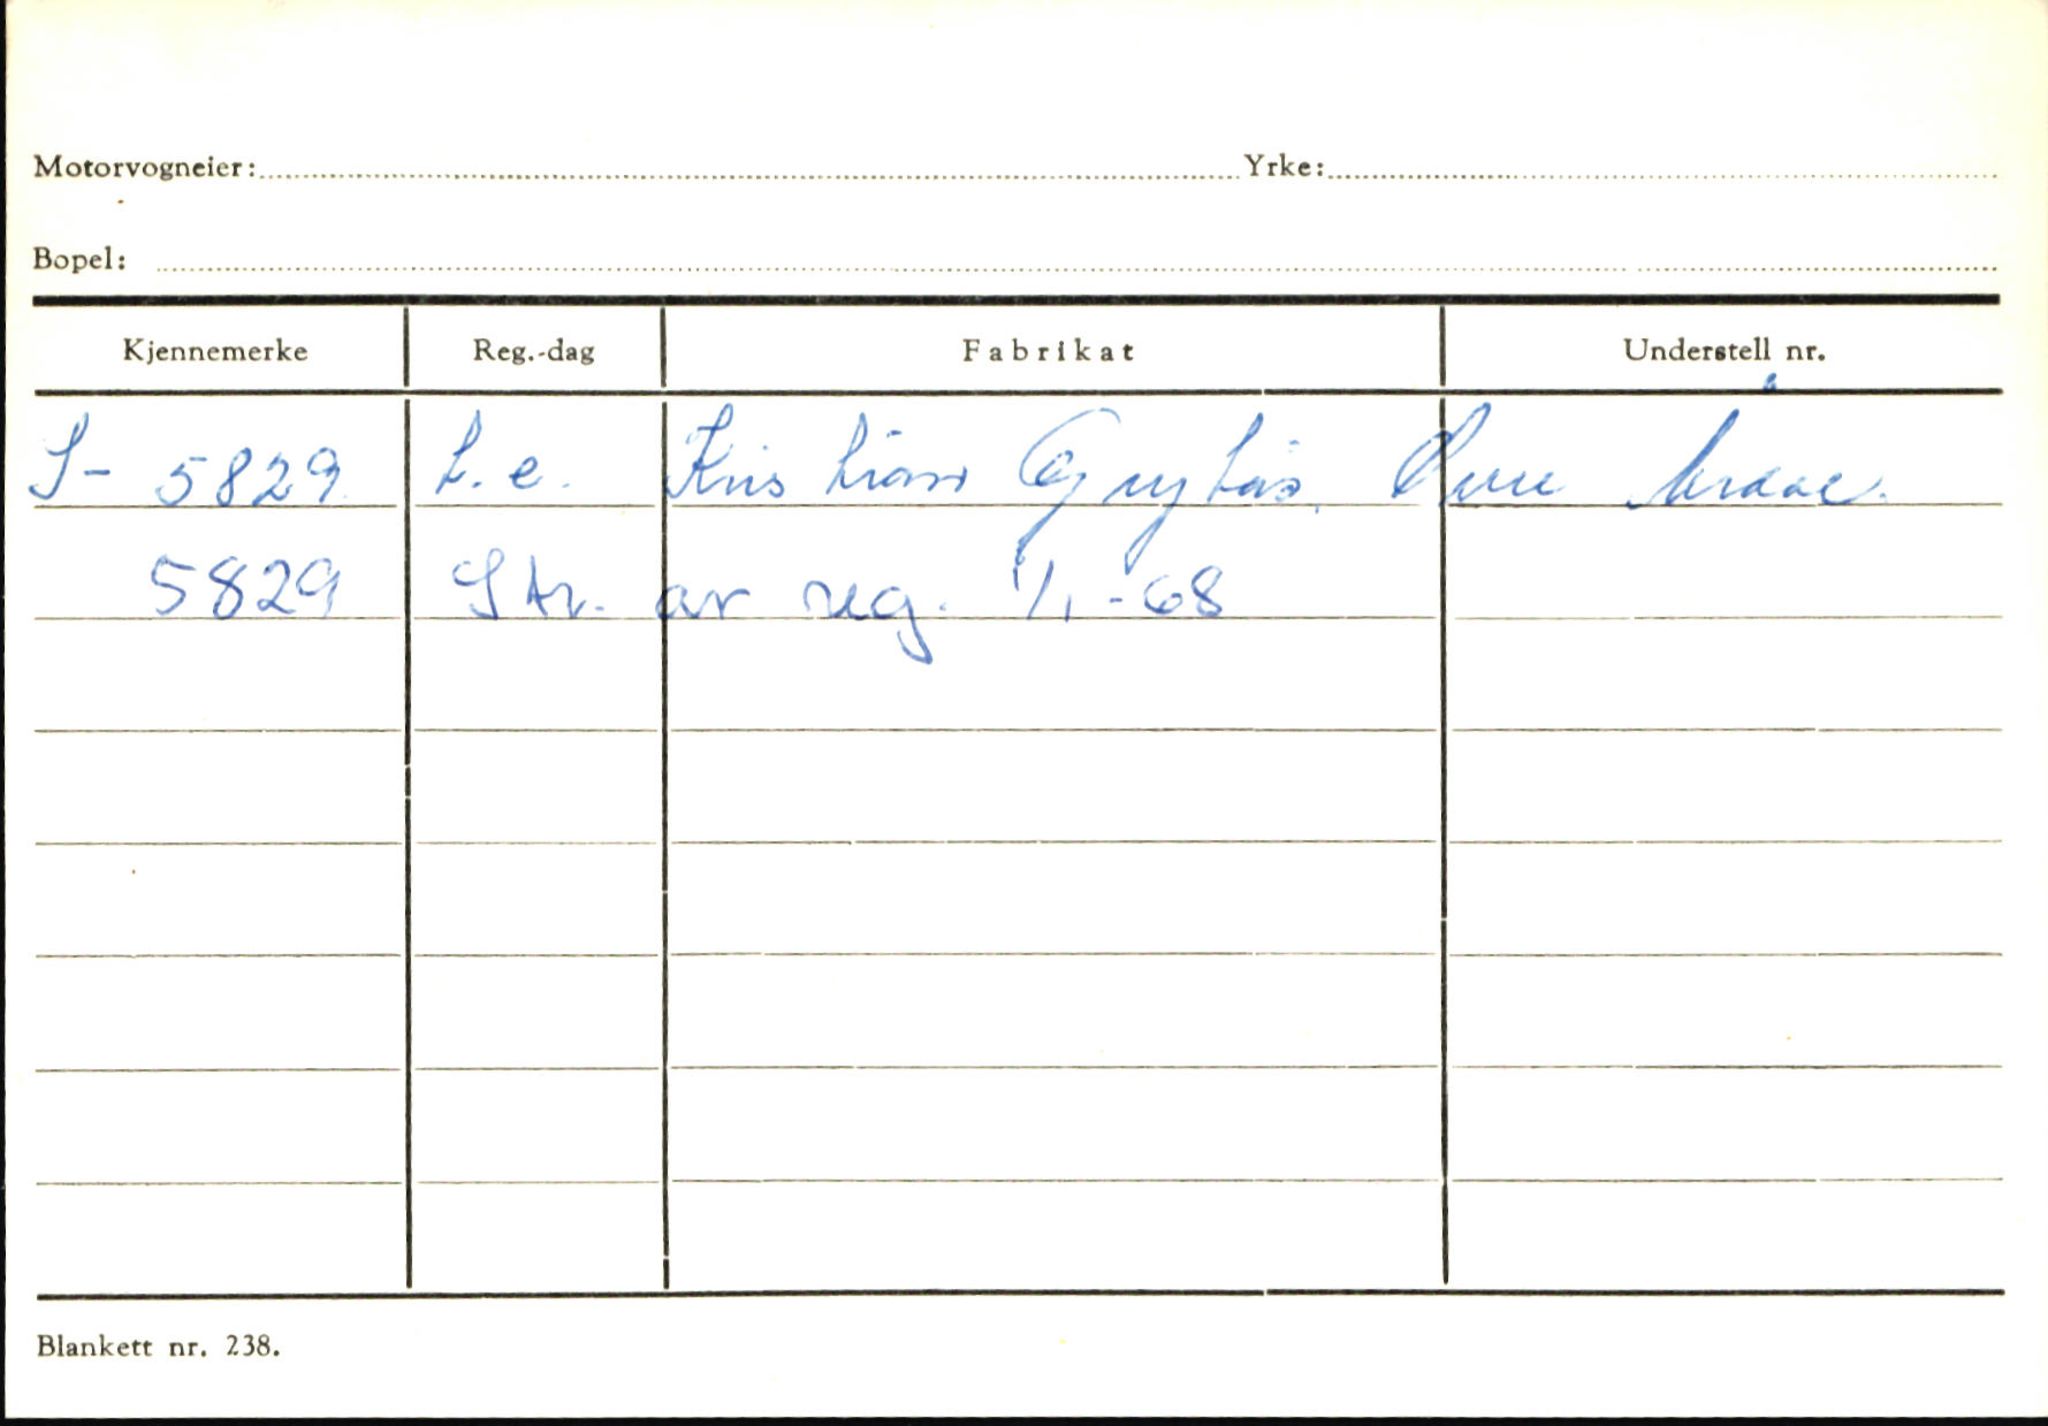 Motorvogneier: Yrke:
Bopel:
Kjennemerke Reg.-dag Fabrikat Understell nr.
S- 5829 t.e. Kristian Øvre Årdal.
5829 Str. av reg. 1/1-68
Blankett nr. 238.